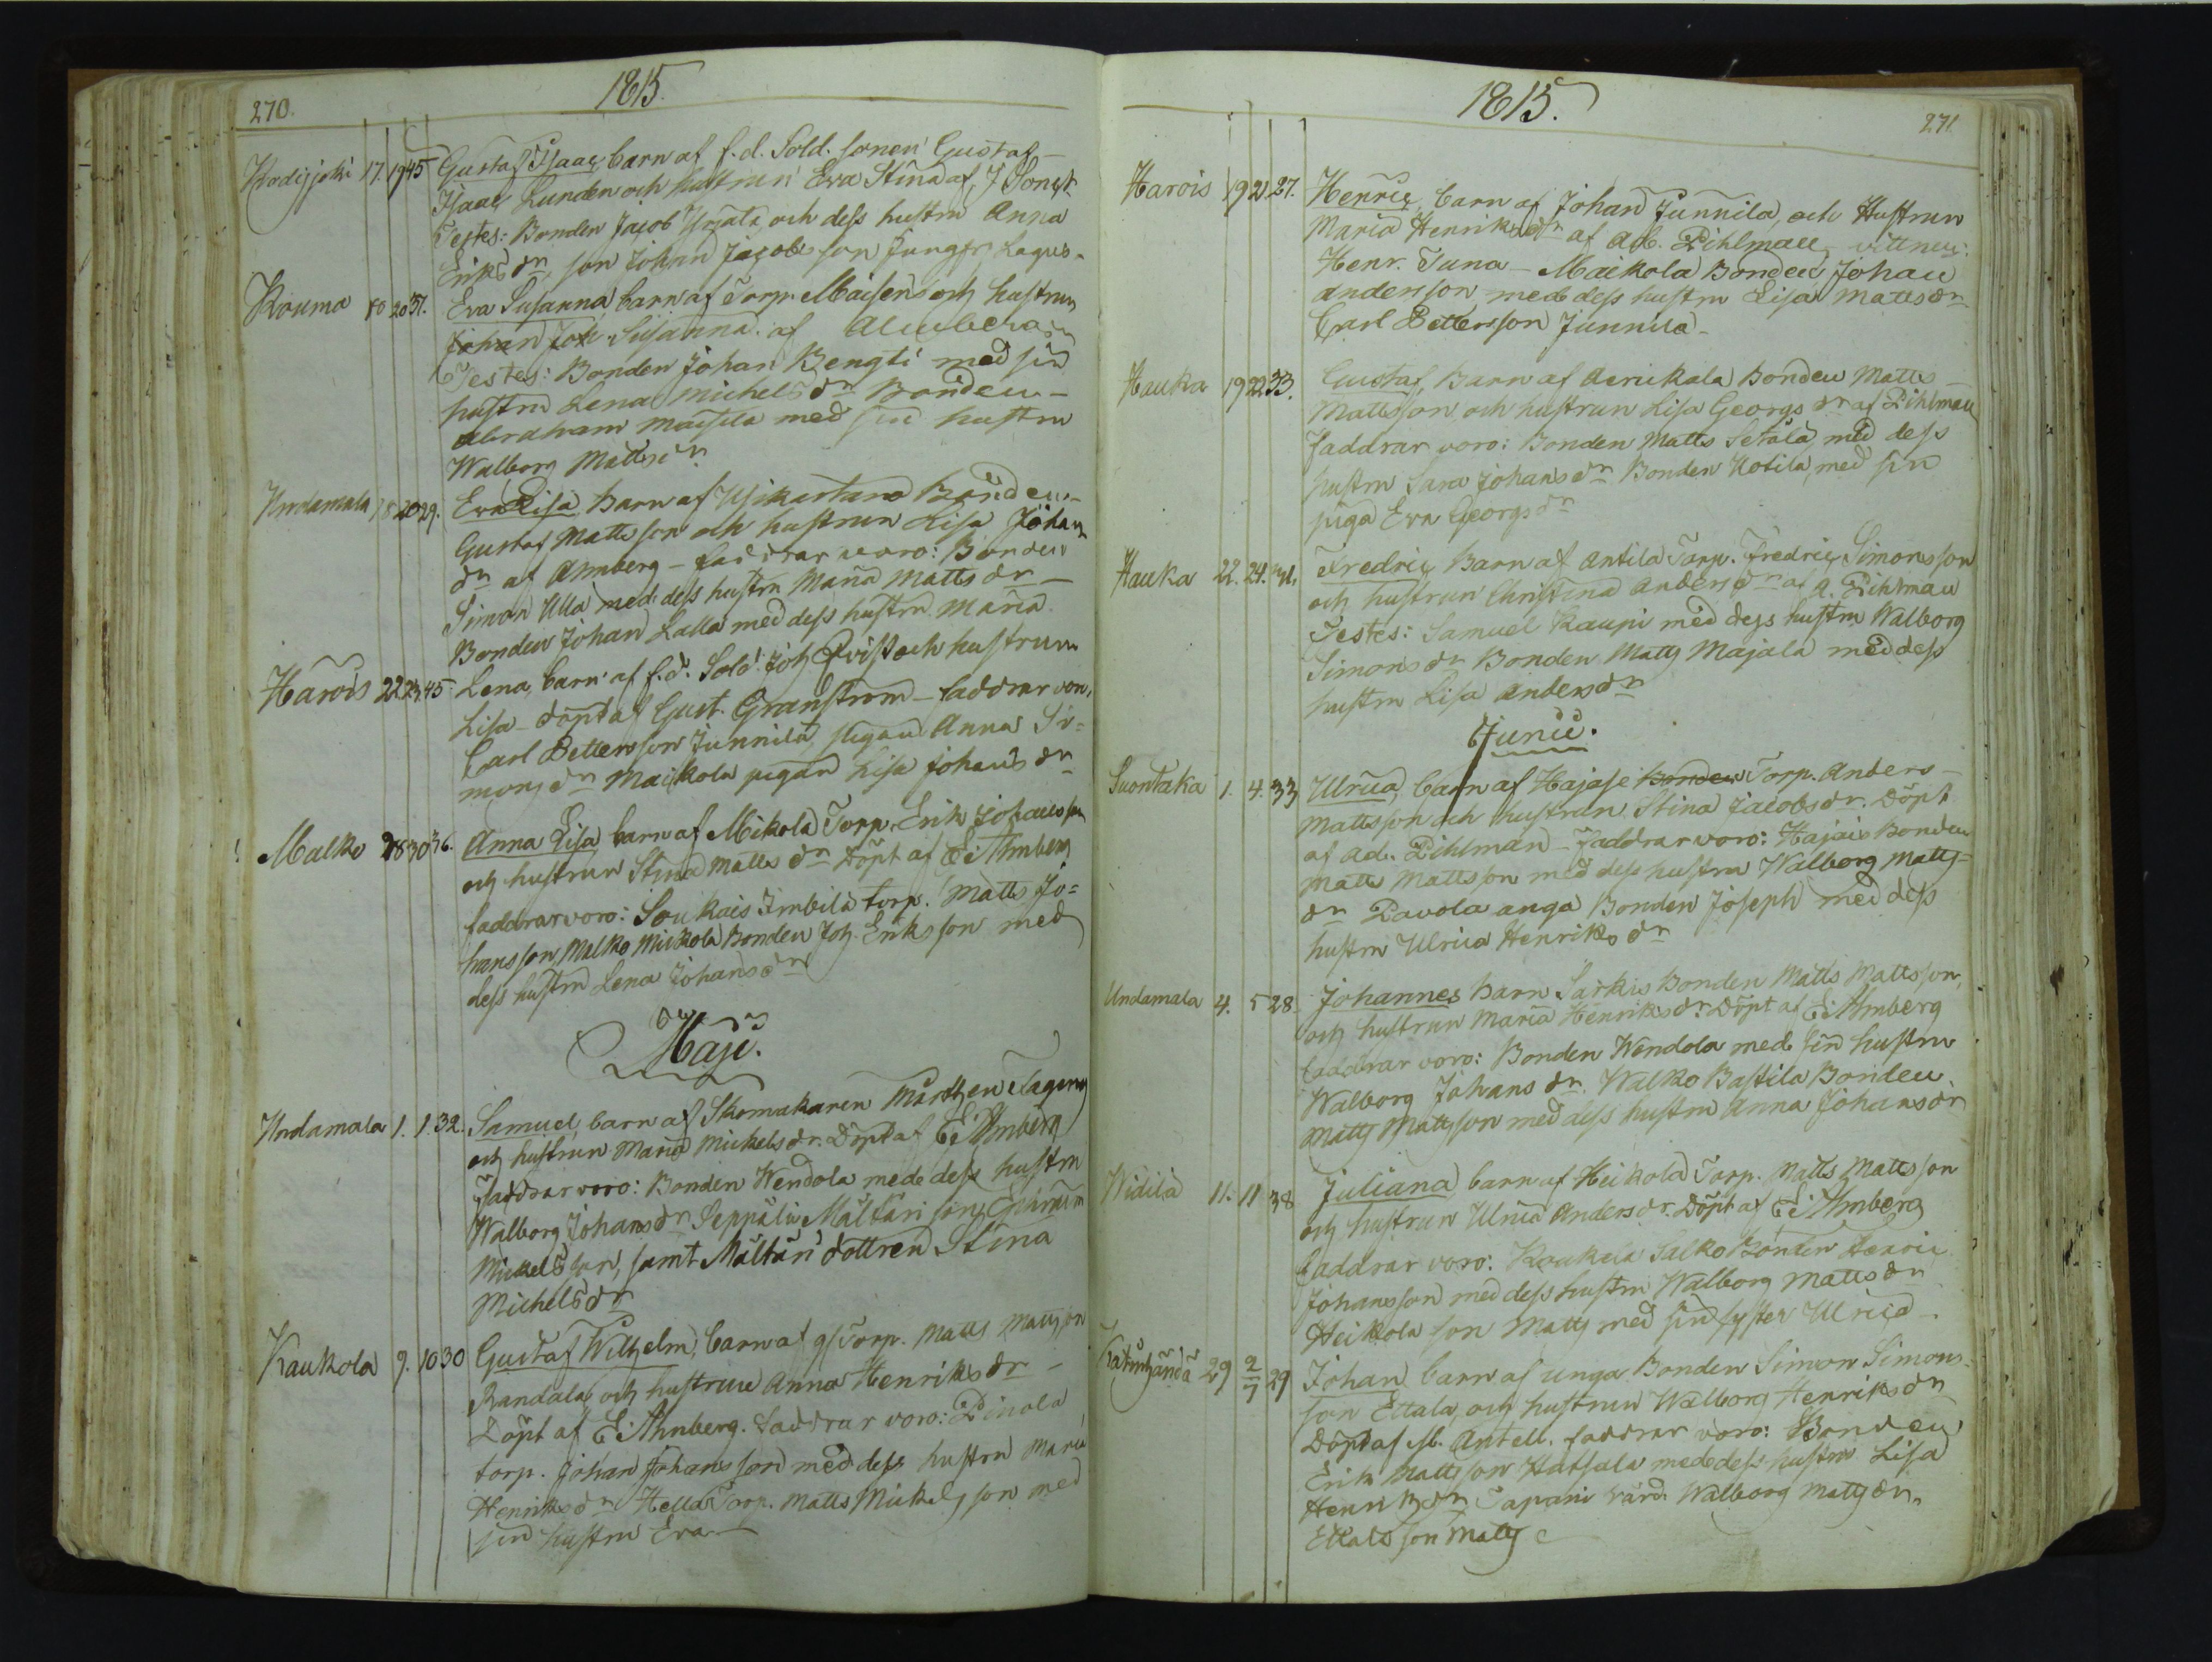 270.
1815.
17. 19 45 Gustaf Isaac, barn af f.d. Sold. sonen Gustaf
Isaac Lunden och hustrun Eva Stina af J
Testes: Bonden Jacob och dess hustru Anna
Eriks dr, son Johan Jacobsson
Kouma 20 37. Eva Susanna barn af Torp. Maisens och hustrun
Susanna. af
Testes: Bonden Johan Bengti med sin
hustru Lena Michels dr Bonden
Abraham Maisila med sin hustru
Walborg Matts dr
Undamala 18 20 29. Eva Lisa Barn af Bonden
Gustaf Mattsson och hustrun Lisa Johans
dr af Ahnberg - faddrar voro: Bonden
Simon Ulla med dess hustru Maria Matts dr
Bonden Johan Lalla med dess hustru Maria
Harois 22 23 45 Lena, barn af f.d. Sold. Joh Qvist och hustrun
Lisa döpt af Gust. Granstrom - faddrar voro,
Carl Pettersson Junnila, pigan Anna Si=
mons dr Maikola pigan Lisa Johans dr
Malko 28 30 36. Anna Lisa barn af Mikola Torp. Erik Johansson
och hustrun Stina Matts dr Döpt af E: Ahnberg
faddrar voro: Soukais Imbila torp. Matts Jo=
hansson, Malko Mickola Bonden Joh. Eriksson med
dess hustru Lena Johans dr
Maji.
Undamala 1. 1. 32. Samuel barn af Skomakaren Mårthen
och hustrun Maria Mickels dr. Döpt af E: Ahnberg
Faddrar voro: Bonden Wendola med dess hustru
Walborg Johans dr Seppälin Mältäri son
Mickelsson, samt Mältäri dottren Stina
Michels dr
Kaukola 9. 10 30 Gustaf Wilhelm, barn af Torp. Matts Mattsson
Randala och hustrun Anna Henriks dr
Döpt af E: Ahnberg. Faddrar voro: Pinola
torp. Johan Johansson med dess hustru Maria
Henriks dr Hella Torp. Matts Mickelsson med
sin hustru Eva
1815.
271
Harois 19 21 27. Henric, barn af Johan Junnila, och Hustrun
Maria Henriks dr af Ad. Pihlman, vittnen:
Henr. Tuna - Maikola Bonden Johan
Andersson med dess hustru Lisa Matts dr
Carl Pettersson Junnila
Hauka 19 22 33. Gustaf, Barn af Bonden Matts
Mattsson och hustrun Lisa Georgs dr af Pihlman
faddrar voro: Bonden Matts Setälä, med dess
hustru Sara Johans dr Bonden Kotila, med sin
piga Eva Georgs dr
Hauka 22. 24. 41. Fredric Barn af Antila Torp. Fredric Simonsson
och hustrun Christina Anders dr af A. Pihlman
Testes: Samuel Kaupi med dess hustru Walborg
Simons dr Bonden Matts Majala med dess
hustru Lisa Anders dr
Junii.
Suontaka 1. 4. 33 Ulrica, barn af Hajase Bonden Torp. Anders
Mattsson och hustrun Stina Jacobs dr. Döpt
af Ad. Pihlman - Faddrar voro: Hajais Bonden
Matts Mattsson med dess hustru Walborg Matts
dr Pavola anga Bonden Joseph med dess
hustru Ulrica Henriks dr
Undamala 4. 5 28. Johannes barn Särkis Bonden Matts Mattsson,
och hustrun Maria Henriks dr. Döpt af E: Ahnberg
faddrar voro: Bonden Wendola med sin hustru
Walborg Johans dr. Walko Bastila Bonden
Matts Mattsson med dess hustru Anna Johans dr
Widila 11. 11 38 Juliana barn af Heikola Torp. Matts Mattsson
och hustrun Ulrica Anders dr. Döpt af E: Ahnberg
faddrar voro: Koukela Salko Bonden Henric
Johansson med dess hustru Walborg Matts dr
Heikola son Matts med sin syster Ulrica
29 2/7 29 Johan barn af unga Bonden Simon Simons
son Ettala, och hustrun Walborg Henriks dr
Döpt af Antell. faddrar voro: Bonden
Erik Mattsson Hatsala med dess hustru Lisa
Henriks dr Tapani värd. Walborg Matts dr.
Ettala son Matts